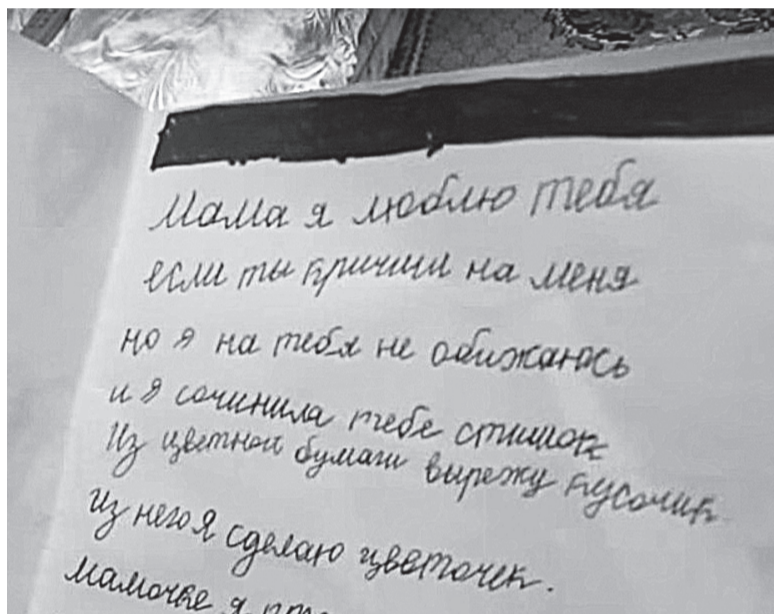 Мама я люблю тебя
если ты кричиш на меня
но я на тебя не обижаюсь
и я сочинила тебе стишок
Из цветной бумаги вырежу кусочик
из него я сделаю цветочек.
мамочке я